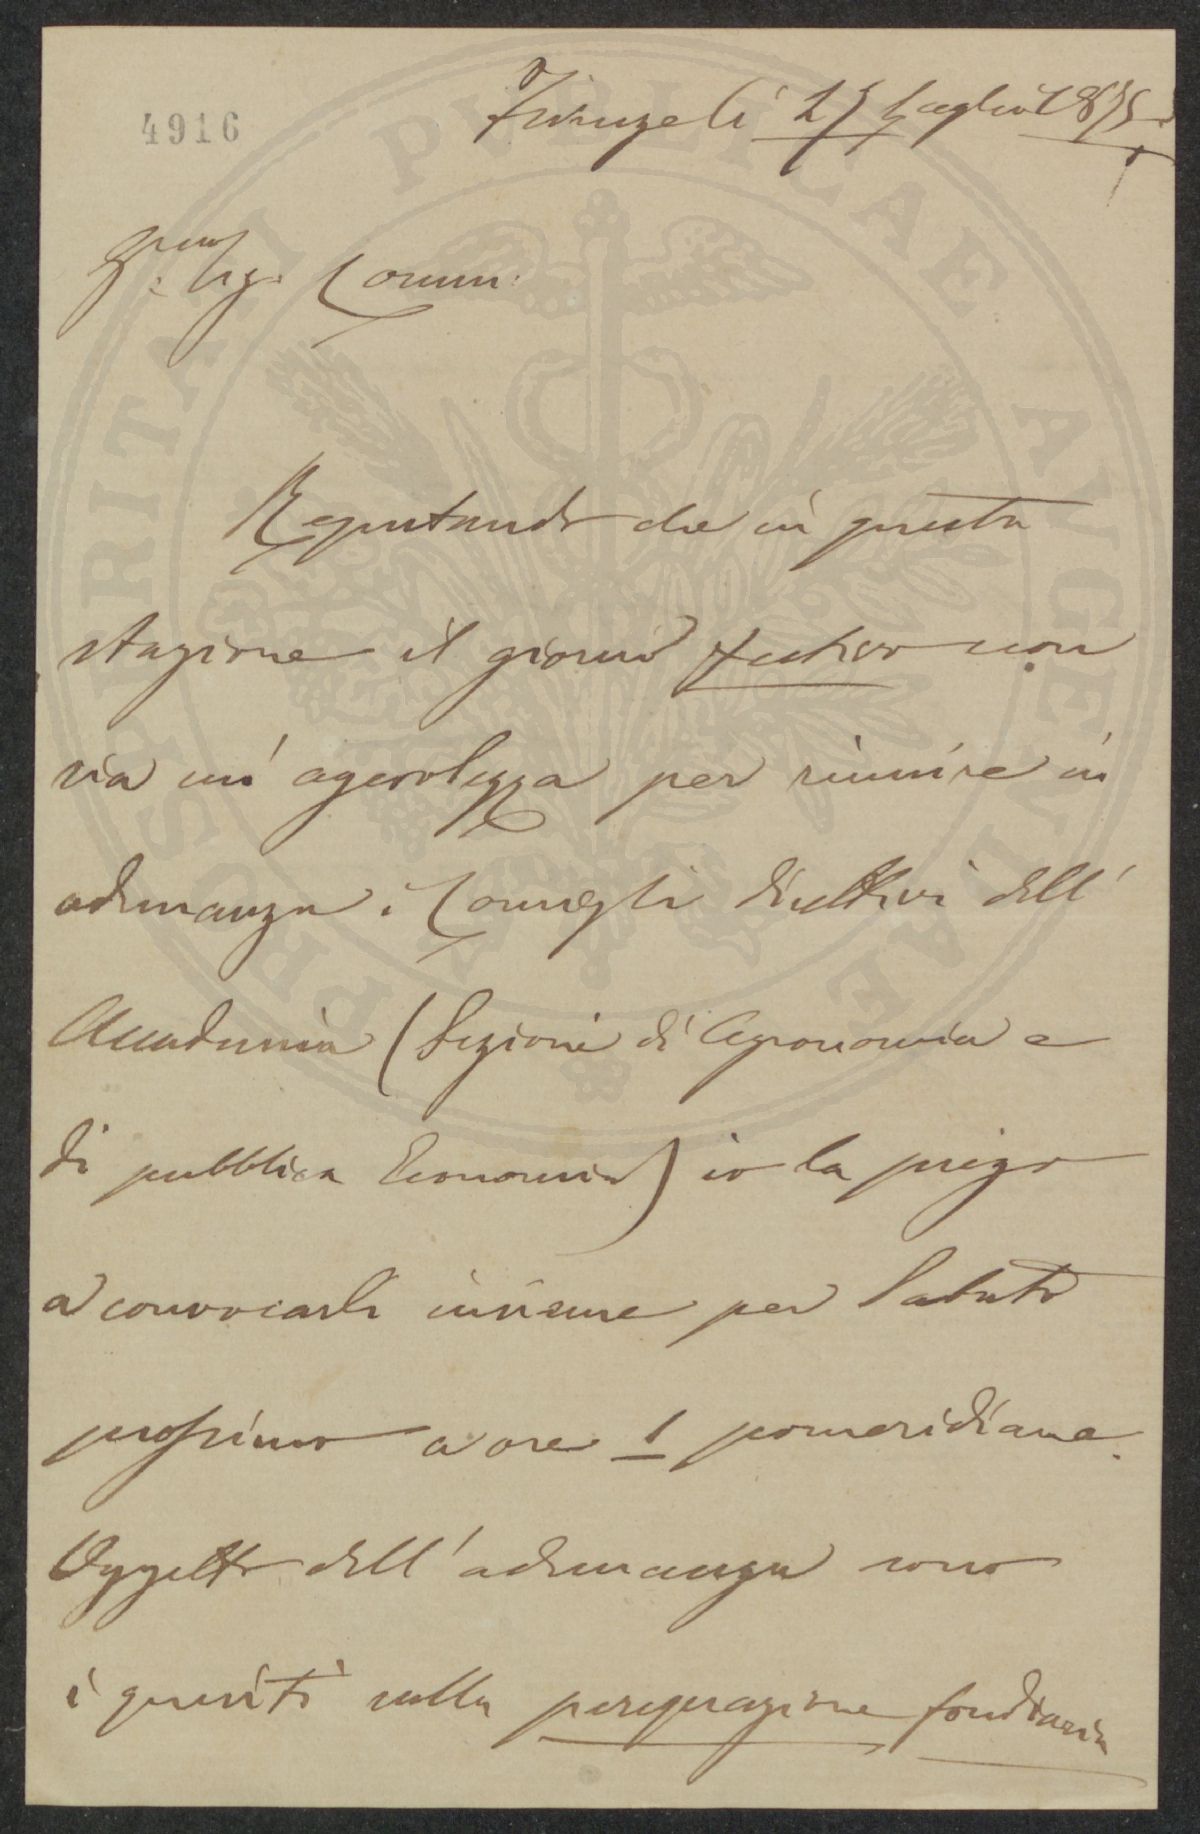 4916
Firenze li 27 Luglio 1875
Sig. Comm:
Reputando che in questa
stagione il giorno festivo non
sia un' agevolezza per riunire in
adunanza i Consigli direttivi dell'
Accademia (Sezioni di Agronomia e
di pubblica Economia) io la prego
a convocarli insieme per Sabato
prossimo a ore 1 pomeridiane.
Oggetto dell'adunanza sono
i quesiti sulla perequazione fondiaria
PROSPERITATI PVBLICAE AVGENDAE